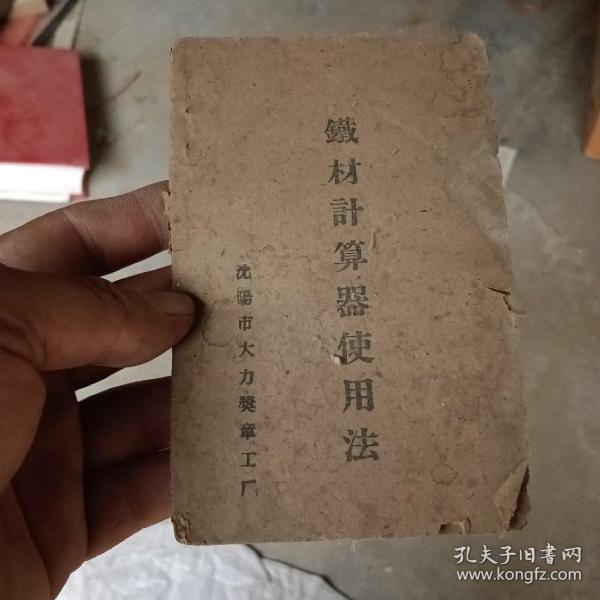 鐵材計算器使用法
沈陽市大力獎章工厂
孔夫子旧书网
www.kongfz.com